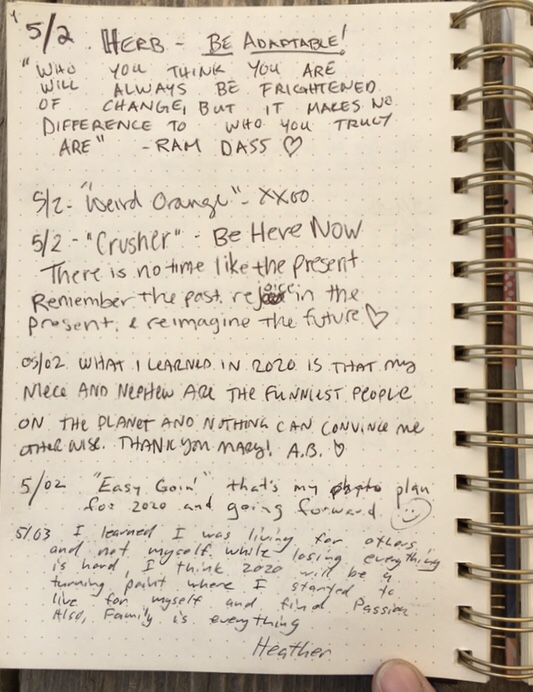 5/2. HERB - BE ADAPTABLE!
"WHO YOU THINK YOU ARE
WILL ALWAYS BE FRIGHTENED
OF CHANGE, BUT IT MAKES NO
DIFFERENCE TO WHO YOU TRULY
ARE" - RAM DASS ♡
5/2 - "Weird Orange" - XXOO
5/2 - "Crusher" - Be Here Now
There is no time like the present
Remember the past, rejoice in the
present, & reimagine the future ♡
05/02 WHAT I LEARNED IN 2020 IS THAT MY
NIECE AND NEPHEW ARE THE FUNNIEST PEOPLE
ON THE PLANET AND NOTHING CAN CONVINCE ME
OTHERWISE. THANK YOU MARY! A.B. ♡
5/02 "Easy Goin'" that's my plan
for 2020 and going forward ☺
5/03 I learned I was living for others
and not myself. While losing everything
is hard, I think 2020 will be a
turning point where I started to
live for myself and find Passion
Also, Family is everything
Heather